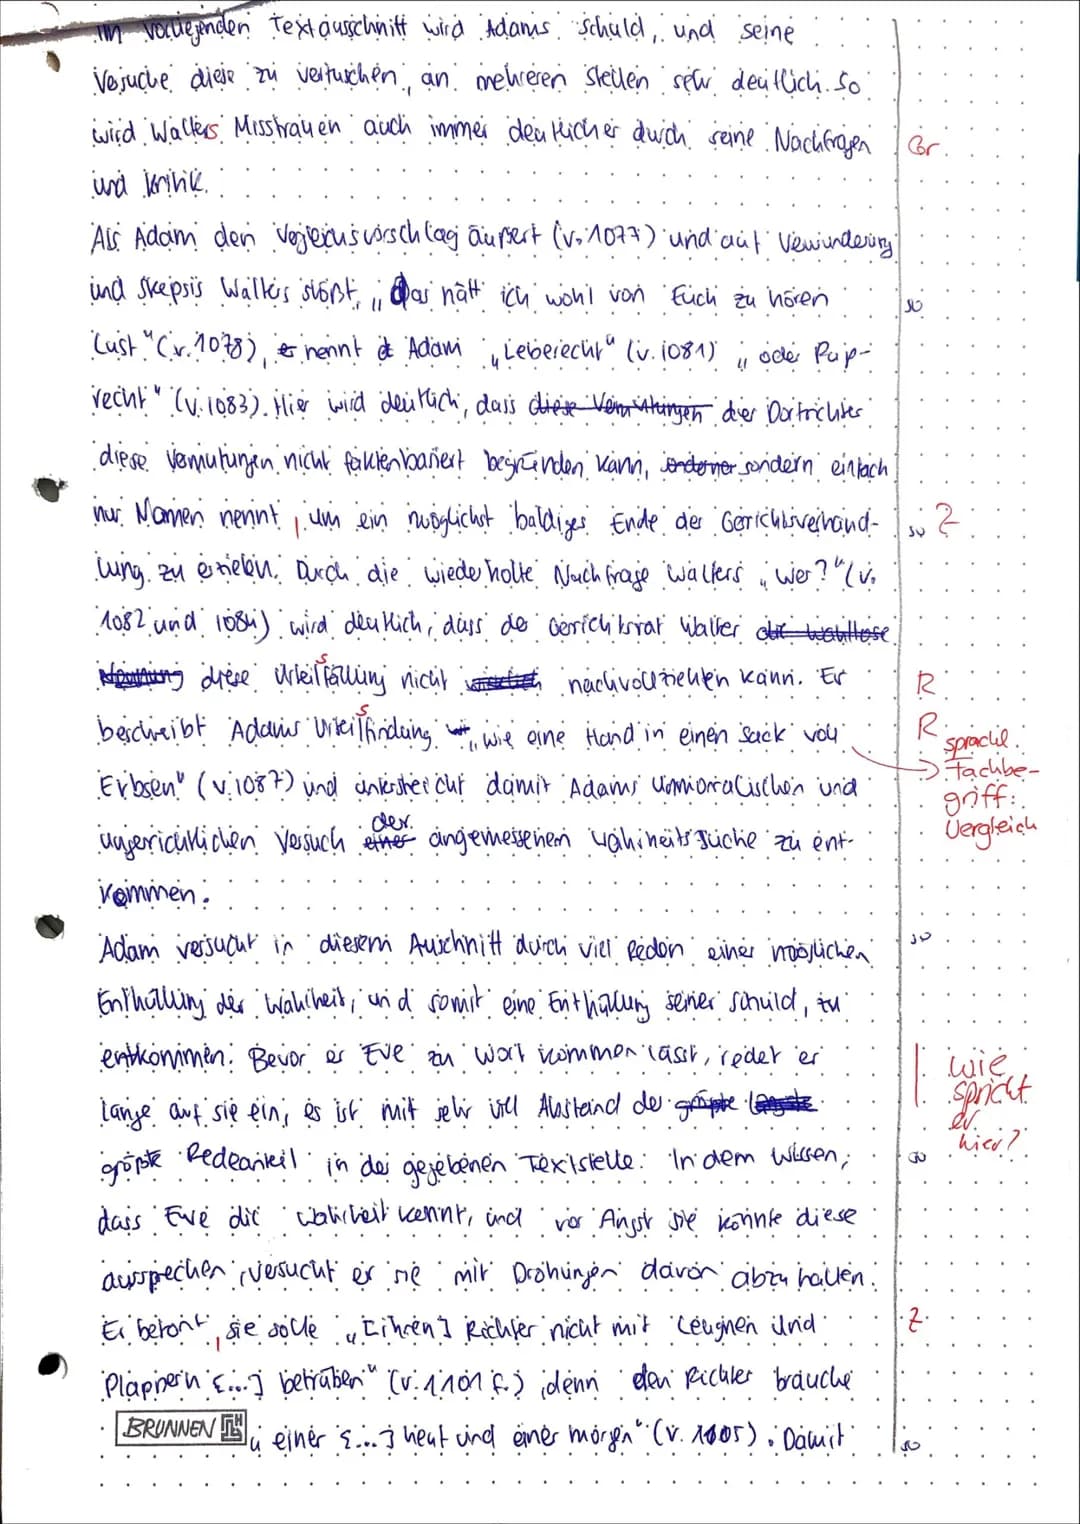 Im vorliegenden Textausschnitt wird Adams Schuld, und seine
Versuche diese zu vertuschen, an mehreren Stellen sehr deutlich. So
wird Walters Misstrauen auch immer deutlicher durch seine Nachfragen
Gr
und Kritik.
Als Adam den Vergleichsvorschlag äußert (v. 1077) und auf Verwunderung
und Skepsis Walters stößt, „Das hätt ich wohl von Euch zu hören
so
Lust" (v. 1078), nennt Adam „Leberecht" (v. 1081) „oder Rup-
recht" (v. 1083). Hier wird deutlich, dass diese Vermutungen der Dorfrichter
diese Vermutungen nicht faktenbasiert begründen kann, sondern einfach
nur Namen nennt, um ein möglichst baldiges Ende der Gerichtsverhand-
so Z
lung zu erzielen. Durch die wiederholte Nachfrage Walters „wer?" (v.
1082 und 1084) wird deutlich, dass der Gerichtsrat Walter die wahllose
Nennung diese Urteilsfällung nicht nachvollziehen kann. Er
R
beschreibt Adams Urteilsfindung „wie eine Hand in einen Sack voll
R
sprachl.
Fachbe-
griff:
Vergleich
Erbsen" (v. 1087) und unterstreicht damit Adams unmoralischen und
ungerichtlichen Versuch einer der angemessenen Wahrheitssuche zu ent-
kommen.
Adam versucht in diesem Auschnitt durch viel Reden einer möglichen
so
Enthüllung der Wahrheit, und somit eine Enthüllung seiner Schuld, zu
entkommen. Bevor er Eve zu Wort kommen lässt, redet er
lange auf sie ein, es ist mit sehr viel Abstand der größte
wie
spricht
er
hier?
größte Redeanteil in der gegebenen Textstelle. In dem Wissen,
dass Eve die Wahrheit kennt, und vor Angst sie könnte diese
aussprechen, versucht er sie mit Drohungen davon abzuhalten.
Er betont, sie solle „[ihren] Richter nicht mit Leugnen und
Z
Plappern [...] betrüben" (v. 1101 f.), denn den Richter brauche
BRUNNEN
„einer [...] heut und einer morgen" (v. 1105). Damit
so